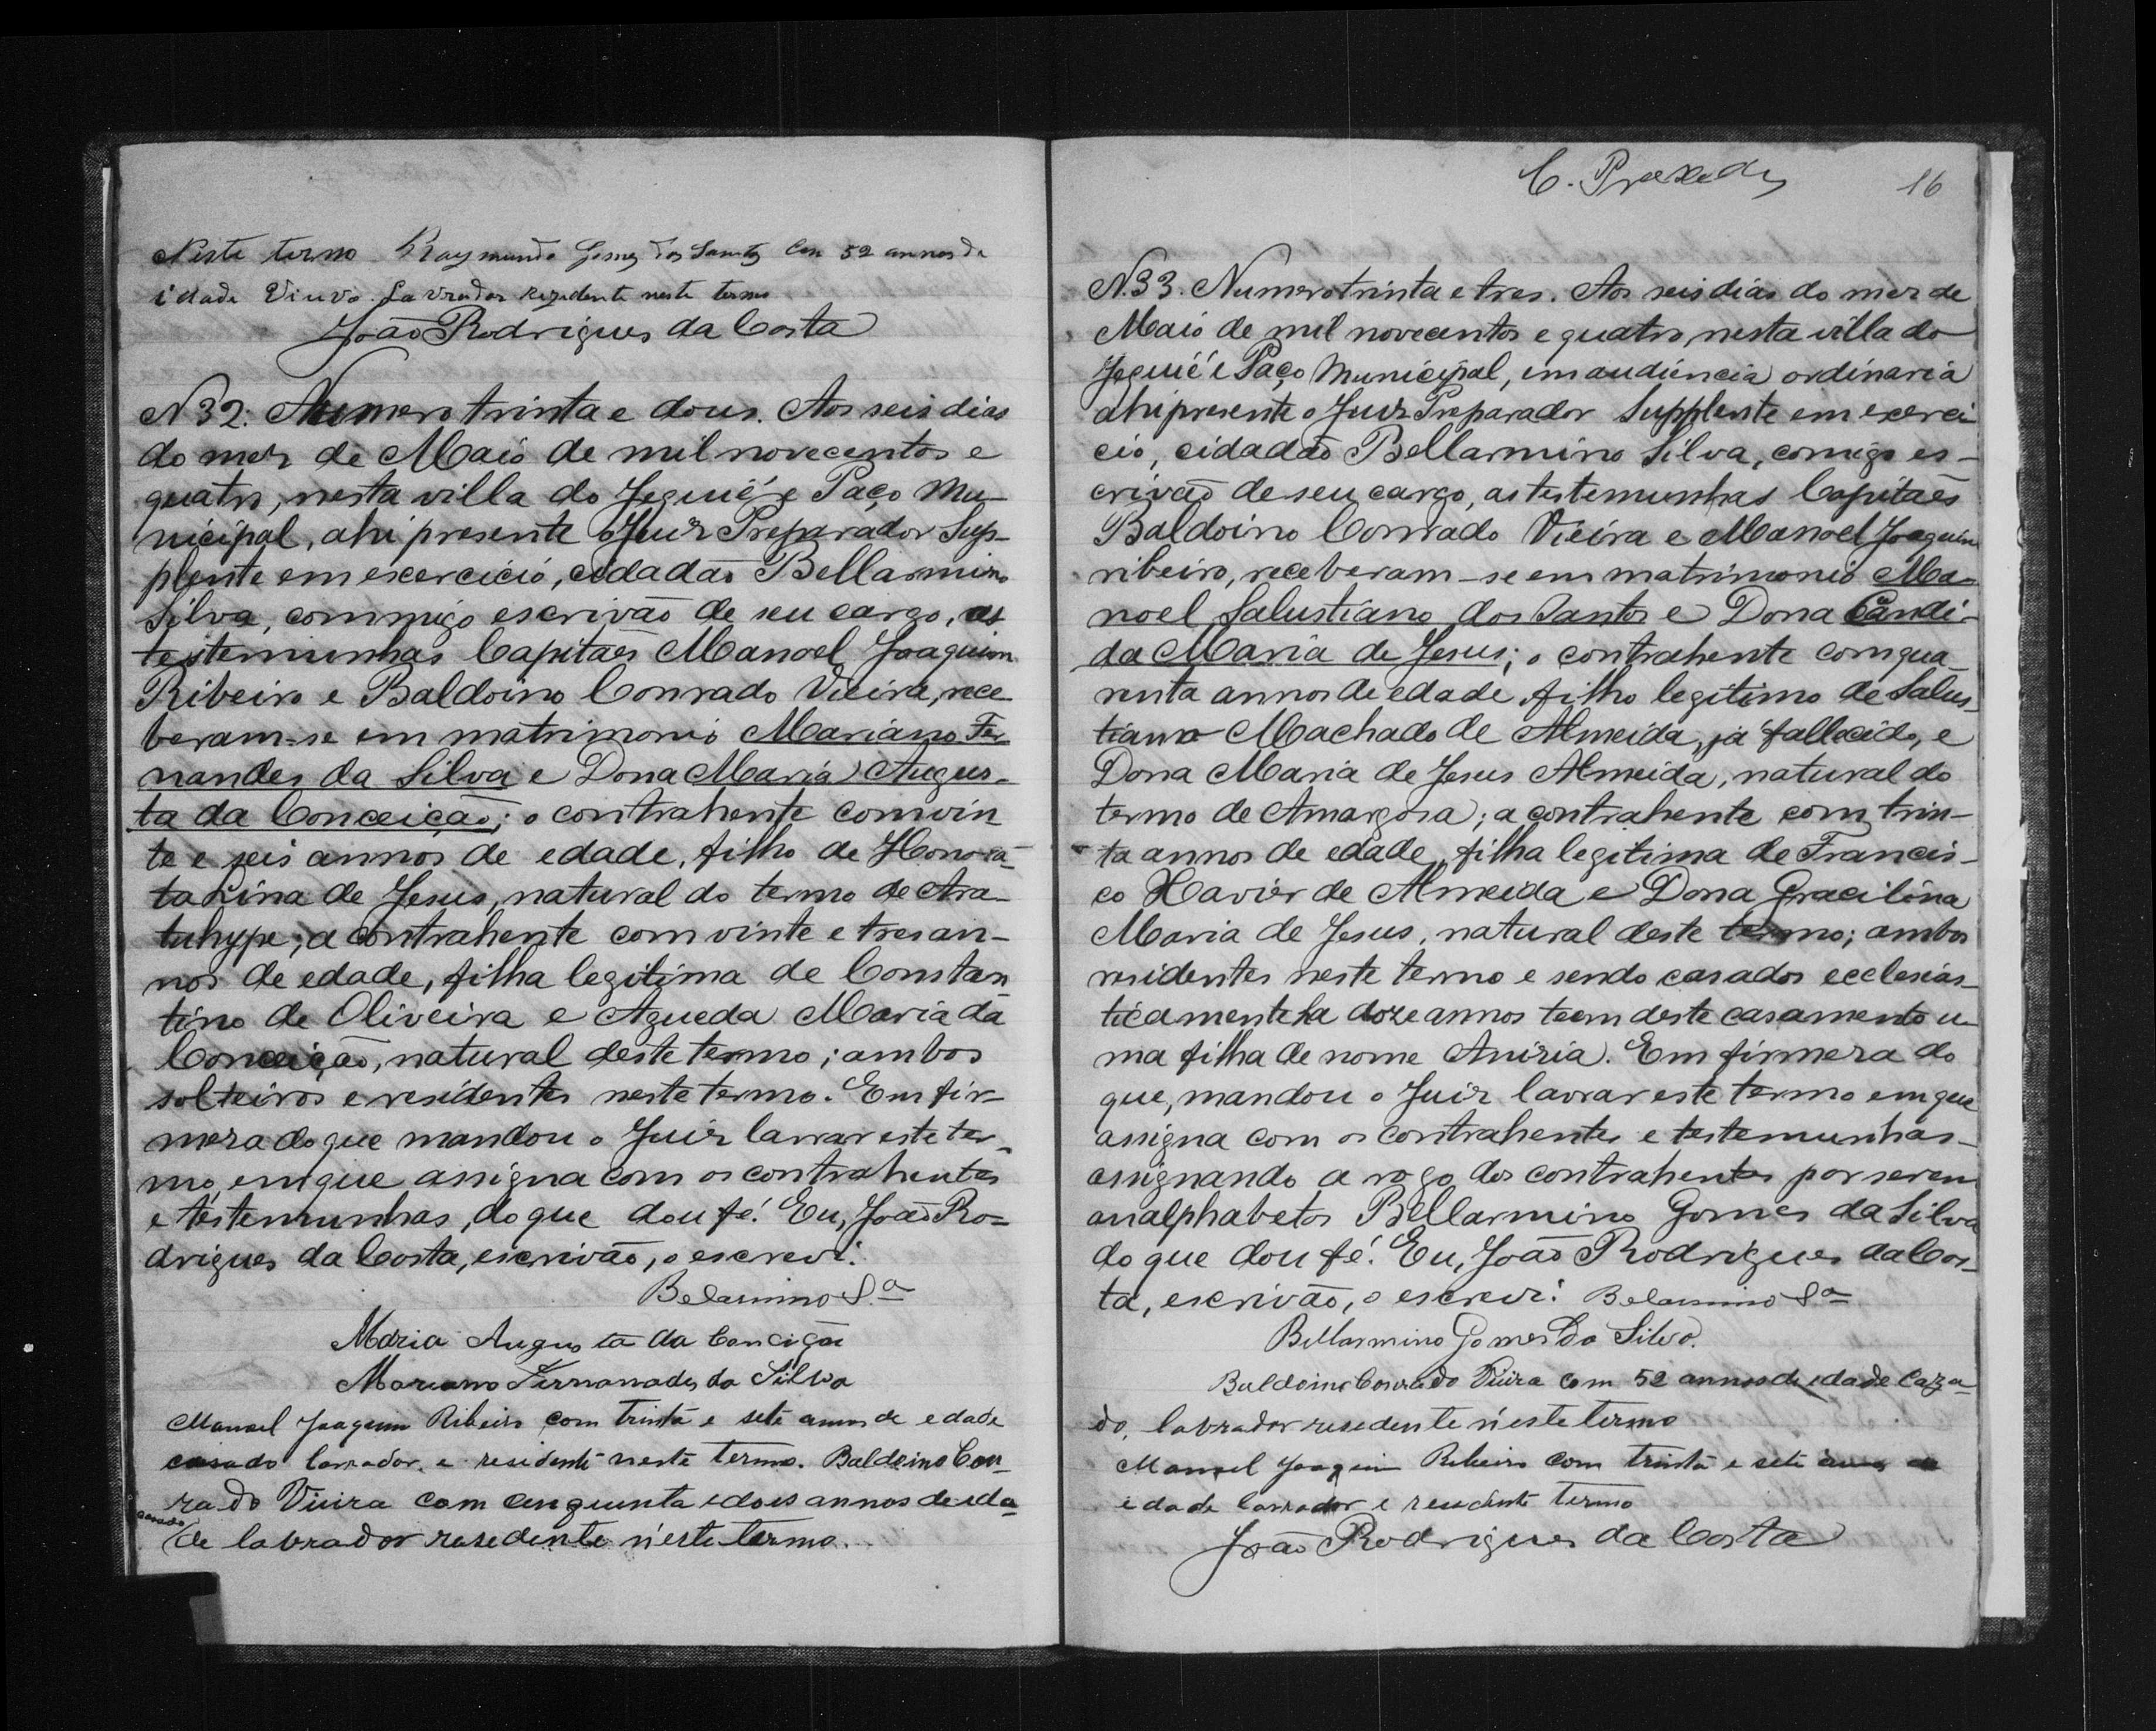 Neste termo Raymundo Gomes dos Santos Com 52 annos de
idade Viuvo. Lavrador rezedente neste termo
João Rodrigues da Costa
N 32. Numero trinta e dous. Aos seis dias
do mez de Maio de mil novecentos e
quatro, nesta villa do Jequié e Paço Mu-
nicipal, ahi presente o Juiz Preparador Sup-
plente em exercicio, cidadão Bellarmino
Silva, commigo escrivão de seu cargo, as
testemunhas Capitães Manoel Joaquim
Ribeiro e Baldoino Conrado Vieira, rece-
beram-se em matrimonio Mariano Fer
nandes da Silva e Dona Maria Augus-
ta da Conceição; o contrahente com vin
te e seis annos de edade, filho de Honora-
ta Lina de Jesus, natural do termo de Ara-
tuhype; a contrahente com vinte e tres an-
nos de edade, filha legitima de Constan
tino de Oliveira e Agueda Maria da
Conceição, natural deste termo; ambos
solteiros e residentes neste termo. Em fir-
meza do que mandou o Juiz lavrar este ter-
mo, em que assigna com os contrahentes
e testemunhas, do que dou fé. Eu, João Ro-
drigues da Costa, escrivão, o escrevi.
Belarmino Sa
Maria Augusta da Concição
Mariano Fernanades da Silva
Manoel Joaquim Ribeiro com trinta e sete annos de edade
casado lavrador, e residente neste termo. Baldoino Con-
rado Vieira com cinquenta e dois annos de ida-
casado
de labrador resedente n'este termo.
C. Praxedes 16
N. 33. Numero trinta e tres. Aos seis dias do mez de
Maio de mil novecentos e quatro, nesta villa do
Jequié e Paço Municipal, em audiencia ordinaria
ahi presente o Juiz Preparador Supplente em exerci-
cio, cidadão Bellarmino Silva, comigo es-
crivão de seu cargo, as testemunhas Capitães
Baldoino Conrado Vieira e Manoel Joaquim
ribeiro, receberam-se em matrimonio Ma-
noel Salustiano dos Santos e Dona Candi-
da Maria de Jesus; o contrahente com qua-
renta annos de edade, filho legitimo de Salus-
tiano Machado de Almeida, já fallecido, e
Dona Maria de Jesus Almeida, natural do
termo de Amargosa; a contrahente com trin-
ta annos de edade, filha legitima de Francis-
co Xavier de Almeida e Dona Gracilina
Maria de Jesus, natural deste termo; ambos
residentes neste termo e sendo casados ecclesias-
ticamente ha doze annos teem deste casamento u-
ma filha de nome Aniria. Em firmeza do
que, mandou o Juiz lavrar este termo em que
assigna com os contrahentes e testemunhas-
assignando a rogo dos contrahentes por serem
analphabetos Bellarmino Gomes da Silva
do que dou fé. Eu, João Rodrigues da Cos-
ta, escrivão, o escrevi. Belarmino Sa
Bellarmino Gomes da Silva.
Baldoino Conrado Vieira com 52 annos de edade Caza-
do, labrador resedente n'este termo
Manoel Joaquim Ribeiro com trinta e sete annos de
edade lavrador e residente termo
João Rodrigues da Costa